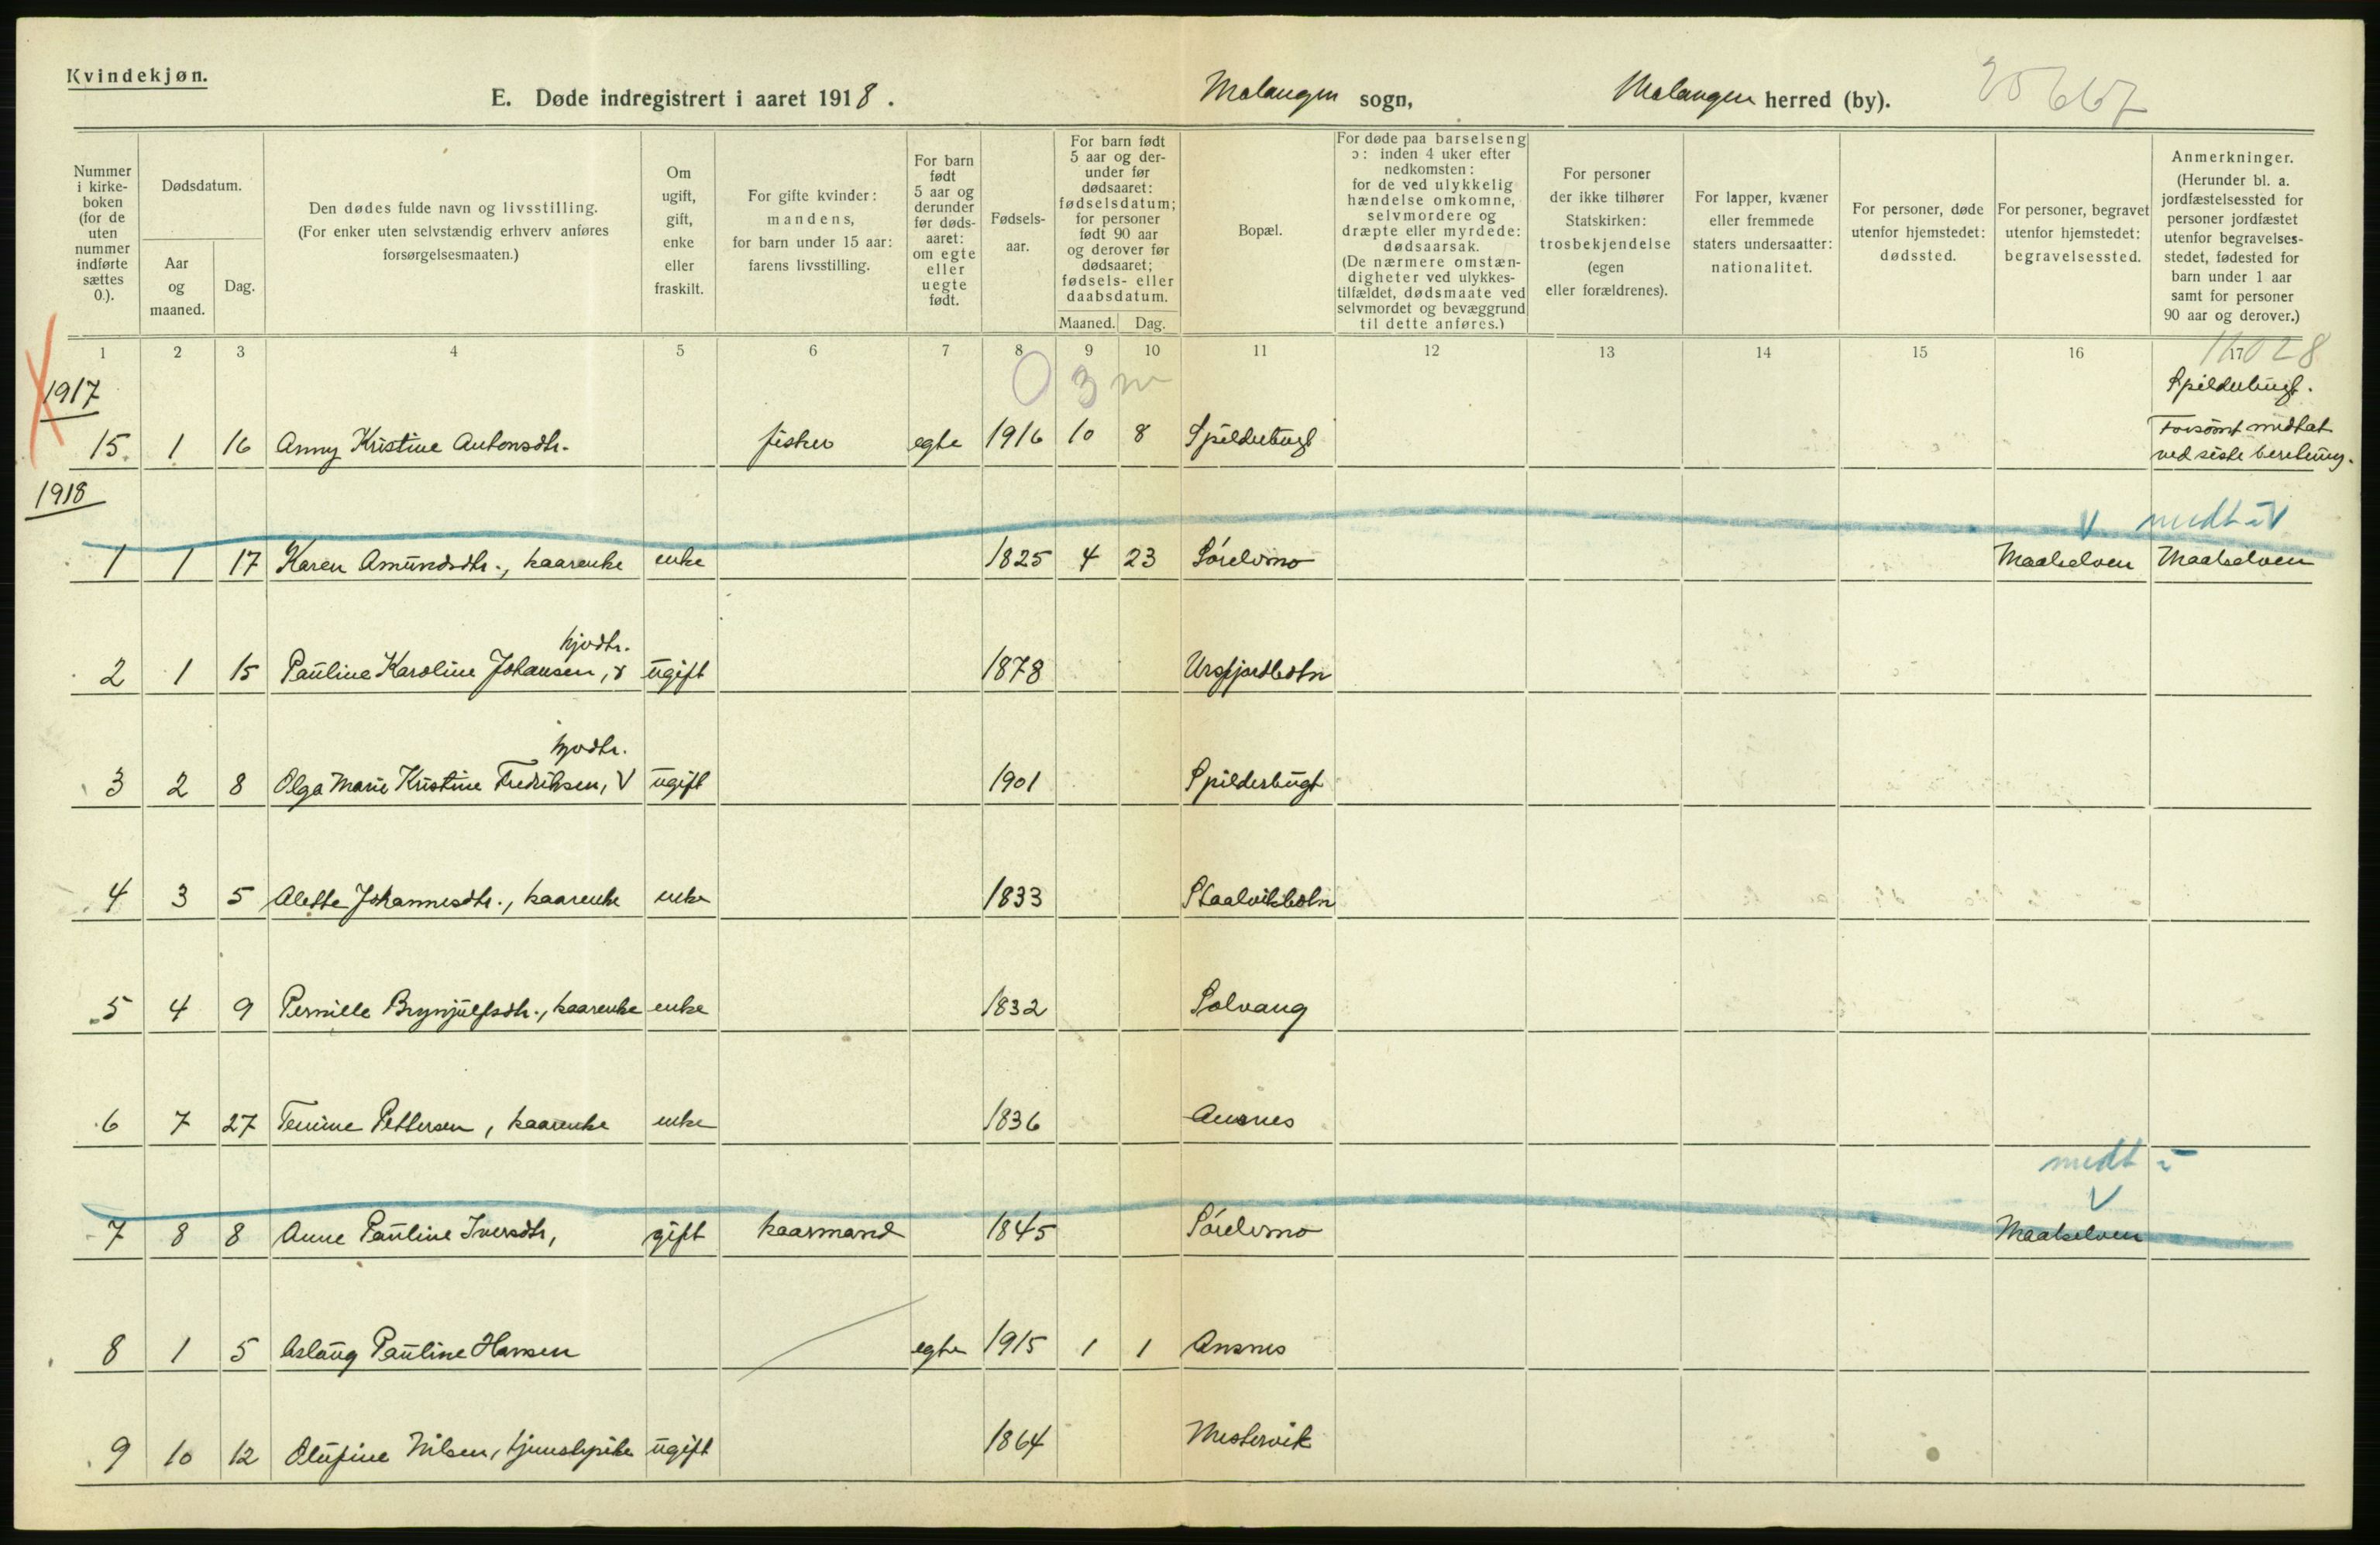 Kvindekjøn.
E. Døde indregistrert i aaret 1918. Malangen sogn, Malangen herred (by). 25667
Nummer i kirke-boken (for de uten nummer indførte sættes 0.).
Dødsdatum.
Aar og maaned.
Dag.
Den dødes fulde navn og livsstilling.
(For enker uten selvstændig erhverv anføres
forsørgelsesmaaten.)
Om ugift, gift, enke eller fraskilt.
For gifte kvinder: mandens, for barn under 15 aar: farens livsstilling.
For barn født 5 aar og derunder før døds-aaret: om egte eller uegte født.
Fødsels-aar.
For barn født 5 aar og der-under før dødsaaret: fødselsdatum; for personer født 90 aar og derover før dødsaaret; fødsels- eller daabsdatum.
Maaned. Dag.
Bopæl.
For døde paa barselseng ɔ: inden 4 uker efter nedkomsten: for de ved ulykkelig hændelse omkomne, selvmordere og dræpte eller myrdede: dødsaarsak. (De nærmere omstæn-digheter ved ulykkes-tilfældet, dødsmaate ved selvmordet og bevæggrund til dette anføres.)
For personer der ikke tilhører Statskirken: trosbekjendelse (egen eller forældrenes).
For lapper, kvæner eller fremmede staters undersaatter: nationalitet.
For personer, døde utenfor hjemstedet: dødssted.
For personer, begravet utenfor hjemstedet: begravelsessted.
Anmerkninger. (Herunder bl. a. jordfæstelsessted for personer jordfæstet utenfor begravelses-stedet, fødested for barn under 1 aar samt for personer 90 aar og derover.)
1 2 3 4 5 6 7 8 9 10 11 12 13 14 15 16 17
0 3 m
1917
Spilderbugt.
15. 1 16 Anny Kristine Antonsdtr. fisker egte 1916 10 8 Spilderbugt Forsömt medtat
ved siste beretning.
1918
medt
1 1 17 Karen Amundsdtr., kaarenke enke 1825 4 23 Sørelvmo Maalselven Maalselven
hjvdtr.
2 1 15 Pauline Karoline Johansen, ugift 1878 Ursfjordbotn
hjvdtr.
3 2 8 Olga Marie Kristine Fredriksen, V ugift 1901 Spilderbugt
4 3 5 Alette Johannesdtr., kaarenke enke 1833 Staalvikbotn
5 4 9 Pernille Brynjulfsdtr., kaarenke enke 1832 Solvang
6 7 27 Tenine Pettersen, kaarenke enke 1836 Ansnes
medt
7 8 8 Anne Pauline Iversdtr, gift kaarmand 1845 Sørelvmo Maalselven
8 1 5 Aslaug Pauline Hansen egte 1915 1 1 Ansnes
9 10 12 Olufine Nilsen, tjenestepike ugift 1864 Mestervik